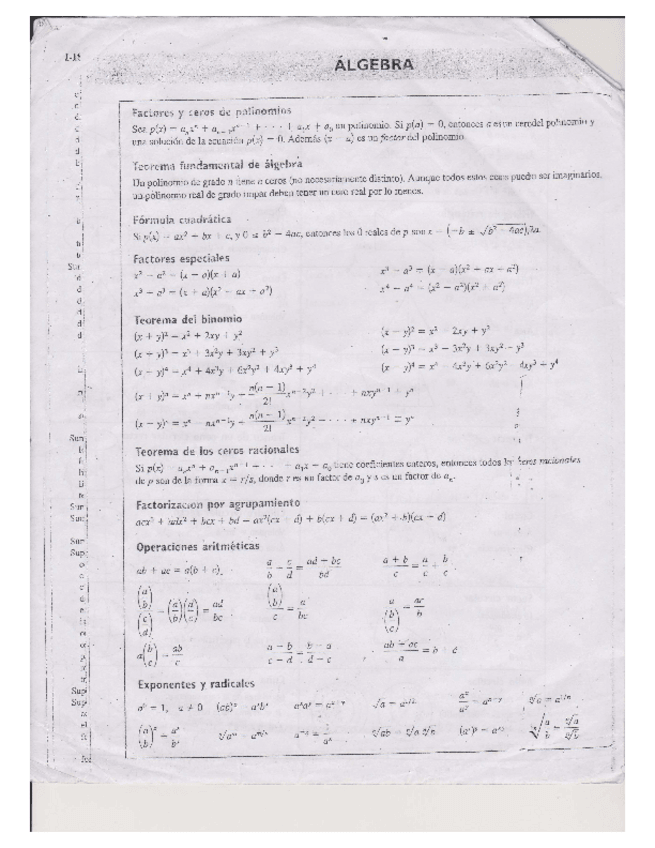 ÁLGEBRA
Factores y ceros de polinomios
Sea p(x) = aₙxⁿ + aₙ₋₁xⁿ⁻¹ + · · · + a₁x + a₀ un polinomio. Si p(a) = 0, entonces a es un cero del polinomio y
una solución de la ecuación p(x) = 0. Además (x − a) es un factor del polinomio.
Teorema fundamental de álgebra
Un polinomio de grado n tiene n ceros (no necesariamente distintos). Aunque todos estos ceros pueden ser imaginarios,
un polinomio real de grado impar deben tener un cero real por lo menos.
Fórmula cuadrática
Si p(x) = ax² + bx + c, y 0 ≤ b² − 4ac, entonces los 0 reales de p son x = (−b ± √b² − 4ac)/2a.
Factores especiales
x² − a² = (x − a)(x + a) x³ − a³ = (x − a)(x² + ax + a²)
x³ + a³ = (x + a)(x² − ax + a²) x⁴ − a⁴ = (x² − a²)(x² + a²)
Teorema del binomio
(x + y)² = x² + 2xy + y² (x − y)² = x² − 2xy + y²
(x + y)³ = x³ + 3x²y + 3xy² + y³ (x − y)³ = x³ − 3x²y + 3xy² − y³
(x + y)⁴ = x⁴ + 4x³y + 6x²y² + 4xy³ + y⁴ (x − y)⁴ = x⁴ − 4x³y + 6x²y² − 4xy³ + y⁴
(x + y)ⁿ = xⁿ + nxⁿ⁻¹y + n(n − 1)/2! xⁿ⁻²y² + · · · + nxyⁿ⁻¹ + yⁿ
(x − y)ⁿ = xⁿ − nxⁿ⁻¹y + n(n − 1)/2! xⁿ⁻²y² − · · · ± nxyⁿ⁻¹ ∓ yⁿ
Teorema de los ceros racionales
Si p(x) = aₙxⁿ + aₙ₋₁xⁿ⁻¹ + · · · + a₁x + a₀ tiene coeficientes enteros, entonces todos los ceros racionales
de p son de la forma x = r/s, donde r es un factor de a₀ y s es un factor de aₙ.
Factorización por agrupamiento
acx³ + adx² + bcx + bd = ax²(cx + d) + b(cx + d) = (ax² + b)(cx + d)
Operaciones aritméticas
ab + ac = a(b + c) a/b + c/d = (ad + bc)/bd (a + b)/c = a/c + b/c
(a/b)/(c/d) = (a/b)(d/c) = ad/bc (a/b)/c = a/bc a/(b/c) = ac/b
a(b/c) = ab/c (a − b)/(c − d) = (b − a)/(d − c) (ab + ac)/a = b + c
Exponentes y radicales
a⁰ = 1, a ≠ 0 (ab)ˣ = aˣbˣ aˣaʸ = aˣ⁺ʸ √a = a¹ᐟ² aˣ/aʸ = aˣ⁻ʸ ⁿ√a = a¹ᐟⁿ
(a/b)ˣ = aˣ/bˣ ⁿ√aᵐ = aᵐᐟⁿ a⁻ˣ = 1/aˣ ⁿ√ab = ⁿ√a ⁿ√b (aˣ)ʸ = aˣʸ ⁿ√a/b = ⁿ√a/ⁿ√b